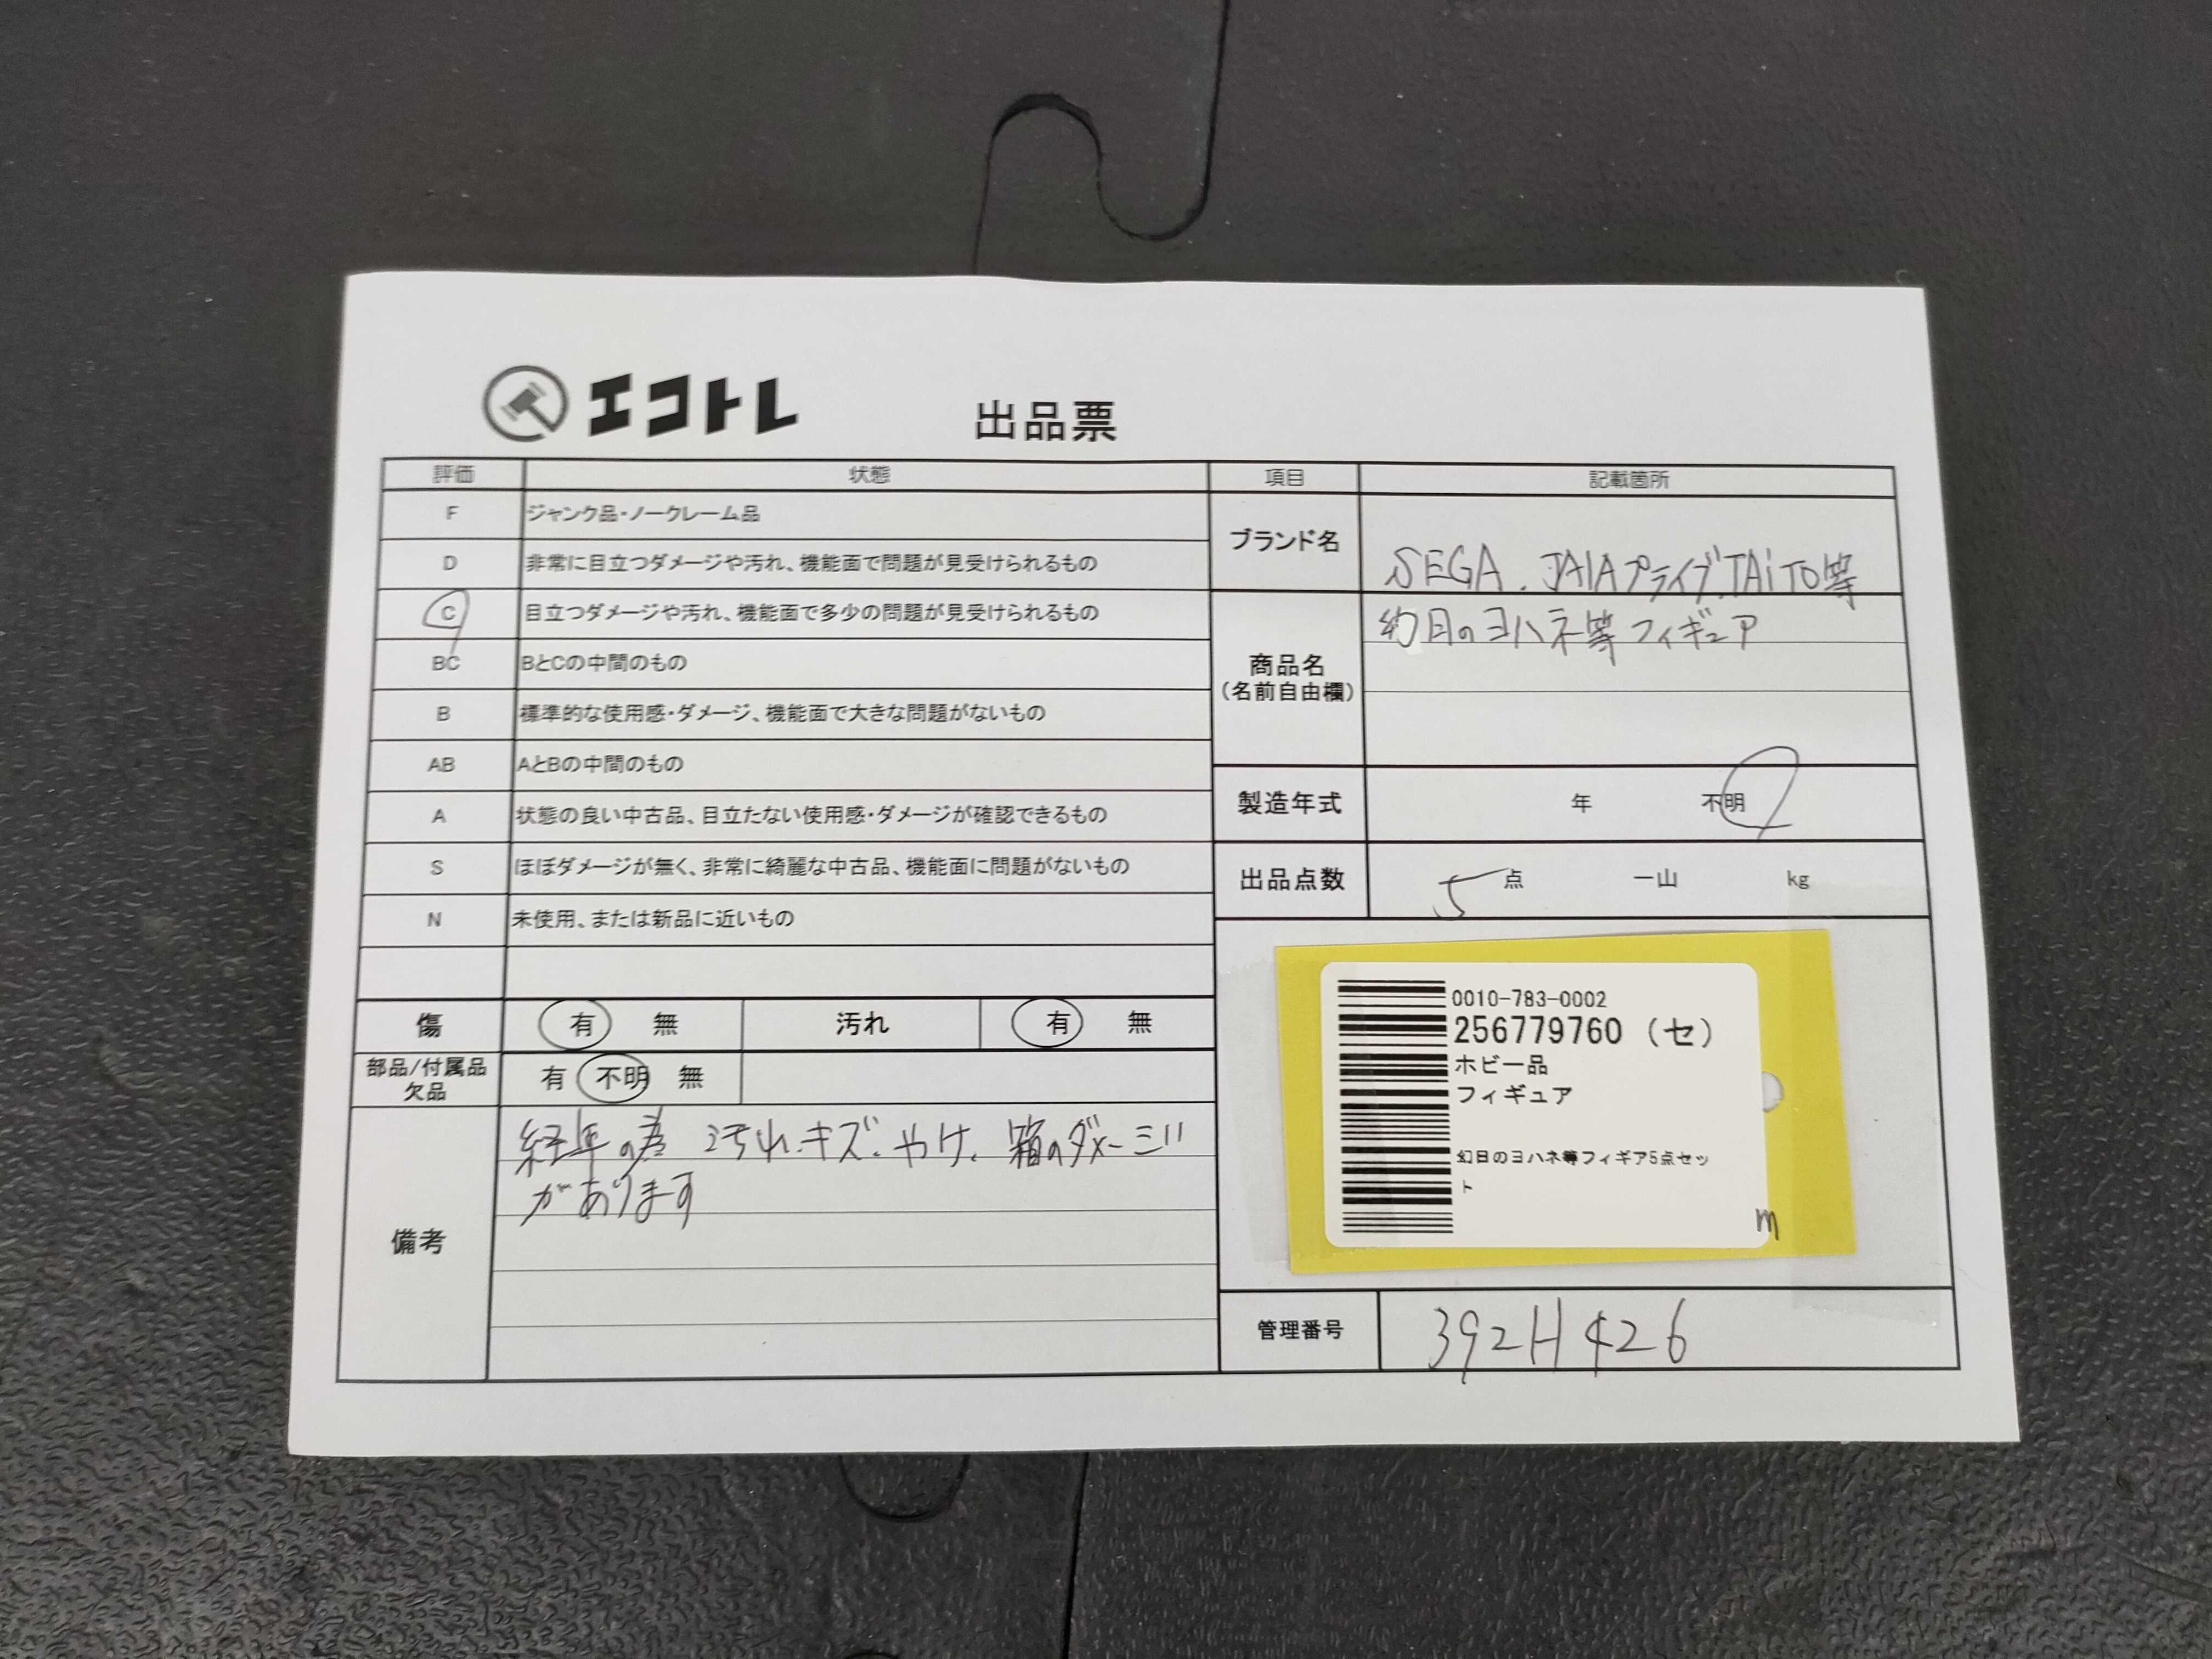 エコトレ
出品票
評価 状態
F ジャンク品・ノークレーム品
D 非常に目立つダメージや汚れ、機能面で問題が見受けられるもの
C 目立つダメージや汚れ、機能面で多少の問題が見受けられるもの
BC BとCの中間のもの
B 標準的な使用感・ダメージ、機能面で大きな問題がないもの
AB AとBの中間のもの
A 状態の良い中古品、目立たない使用感・ダメージが確認できるもの
S ほぼダメージが無く、非常に綺麗な中古品、機能面に問題がないもの
N 未使用、または新品に近いもの
傷 有 無 汚れ 有 無
部品/付属品 欠品 有 不明 無
備考
経年の為 汚れ.キズ.やけ、箱のダメージ
があります
項目 記載箇所
ブランド名 SEGA、JAIAプライズ、TAiTO等
商品名
(名前自由欄)
幻日のヨハネ等フィギュア
製造年式 年 不明
出品点数 5 点 一山 kg
0010-783-0002
256779760 (セ)
ホビー品
フィギュア
幻日のヨハネ等フィギア5点セッ
ト
m
管理番号 392H426